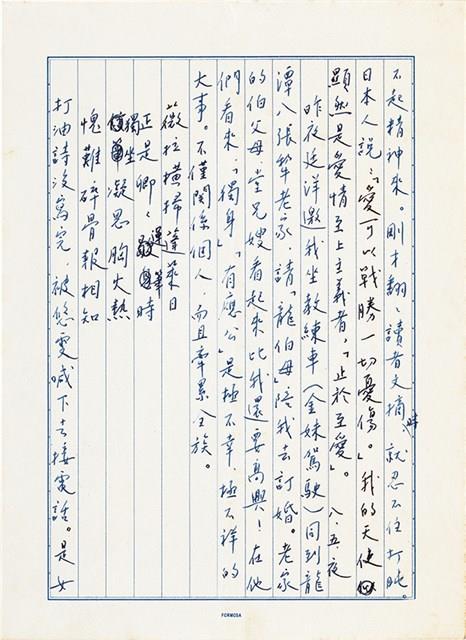 不起精神來。剛才翻翻讀者文摘時,就忍不住打盹。
日本人說:「愛可以戰勝一切憂傷。」我的天使
顯然是愛情至上主義者,「止於至愛」。 八、五、夜
昨夜廷洋邀我坐教練車(金妹駕駛)同到龍
潭八張犂老家,請「龍伯母」陪我去訂婚。老家
的伯父母堂兄嫂看起來比我還要高興!在他
們看來,「獨身」「有應公」是極不幸、極不祥的
大事。不僅關係個人,而且牽累全族。
薇拉橫掃蓬萊日
正是卿卿運筆時
獨坐凝思胸火熱
愧難碎骨報相知
打油詩沒寫完,被悠雯喊下去接電話。是女
FORMOSA